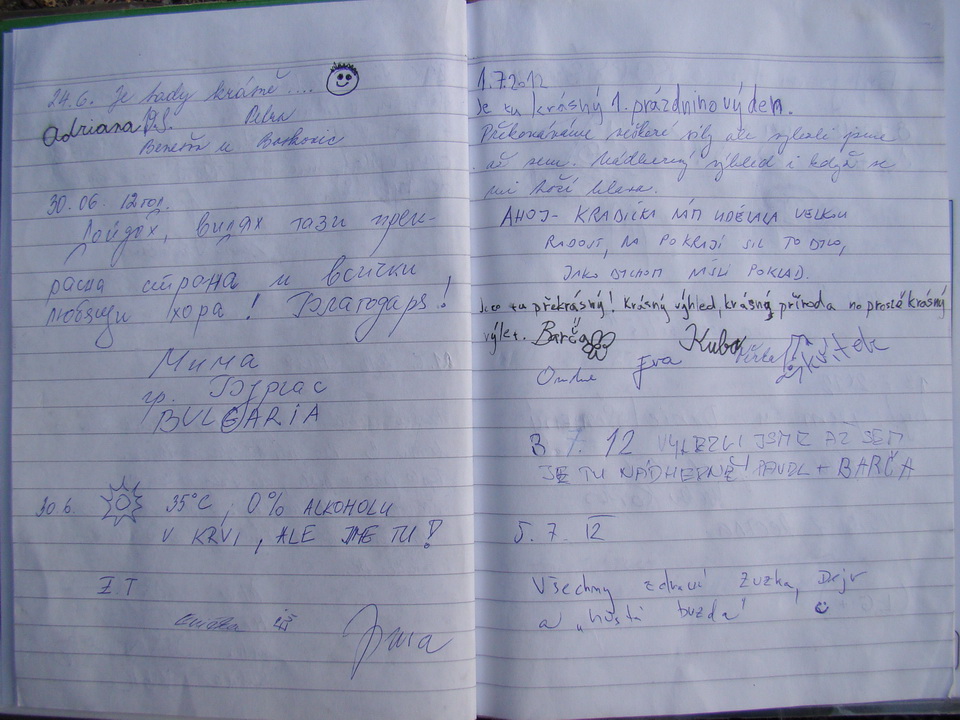 24.6. Je tady krásně ....
Adriana
Petra
30.06. 12 год.
Дойдох, видях тази прек-
расна страна и всички
любящи хора! Благодаря!
Мима
гр. Бургас
BULGARIA
30.6. 35°C, 0% ALKOHOLU
V KRVI, ALE JSME TU!
I.T
1.7.2012
Je tu krásný 1. prázdninový den.
Překonáváme veškeré síly ale vylezli jsme
až sem. Nádherný výhled i když se
mi točí hlava.
AHOJ- KRABIČKA NÁM UDĚLALA VELKOU
RADOST, NA POKRAJI SIL TO BYLO,
JAKO BYCHOM NAŠLI POKLAD.
Jeo tu překrásný! Krásný výhled, krásný příroda no prostě krásný
výlet. Barča Kuba
Eva
3 7. 12 VYLEZLI JSME AŽ SEM
JE TU NÁDHERNĚ! PAVEL + BARČA
5. 7. 12
Všechny zdraví Zuzka, Dejv
a „hustá buzda"